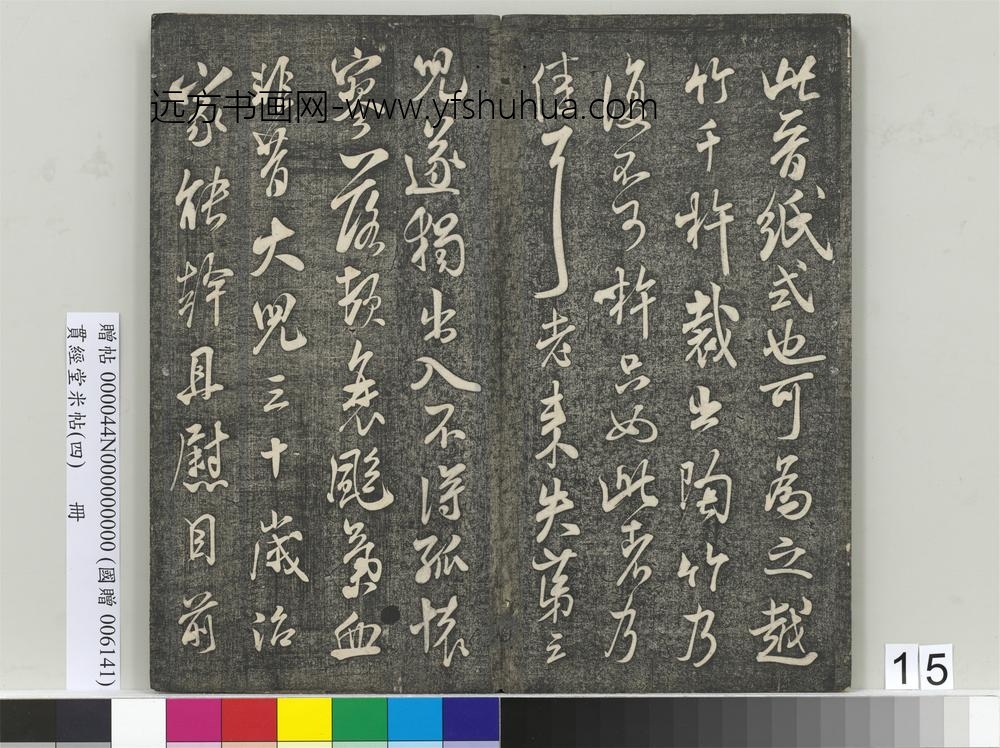 此晉紙式也可為之越
竹千杵裁出陶竹乃
復不可杵只如此者乃
佳耳老來失第三
兒遂獨出入不得孤懷
寥落頓衰颯氣血
非昔大兒三十歲治
家能幹且慰目前
远方书画网-www.yfshuhua.com
贈帖 000044N000000000 (國贈 006141)
貫經堂米帖(四) 冊
15